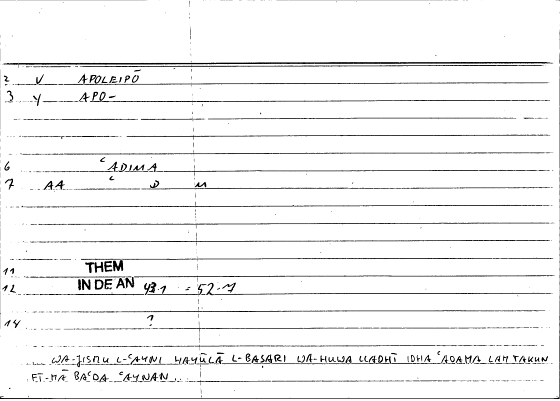 2 V APOLEIPŌ
3 Y APO-
6 ʿADIMA
7 AA ʿ D M
11 THEM
12 IN DE AN 43.1 = 52.7
14 ?
WA-JISMU L-ʿAYNI HAYŪLĀ L-BASARI WA-HUWA LLADHĪ IDHA ʿADAMA LAM TAKUN
FĪ-MĀ BAʿDA ʿAYNAN.